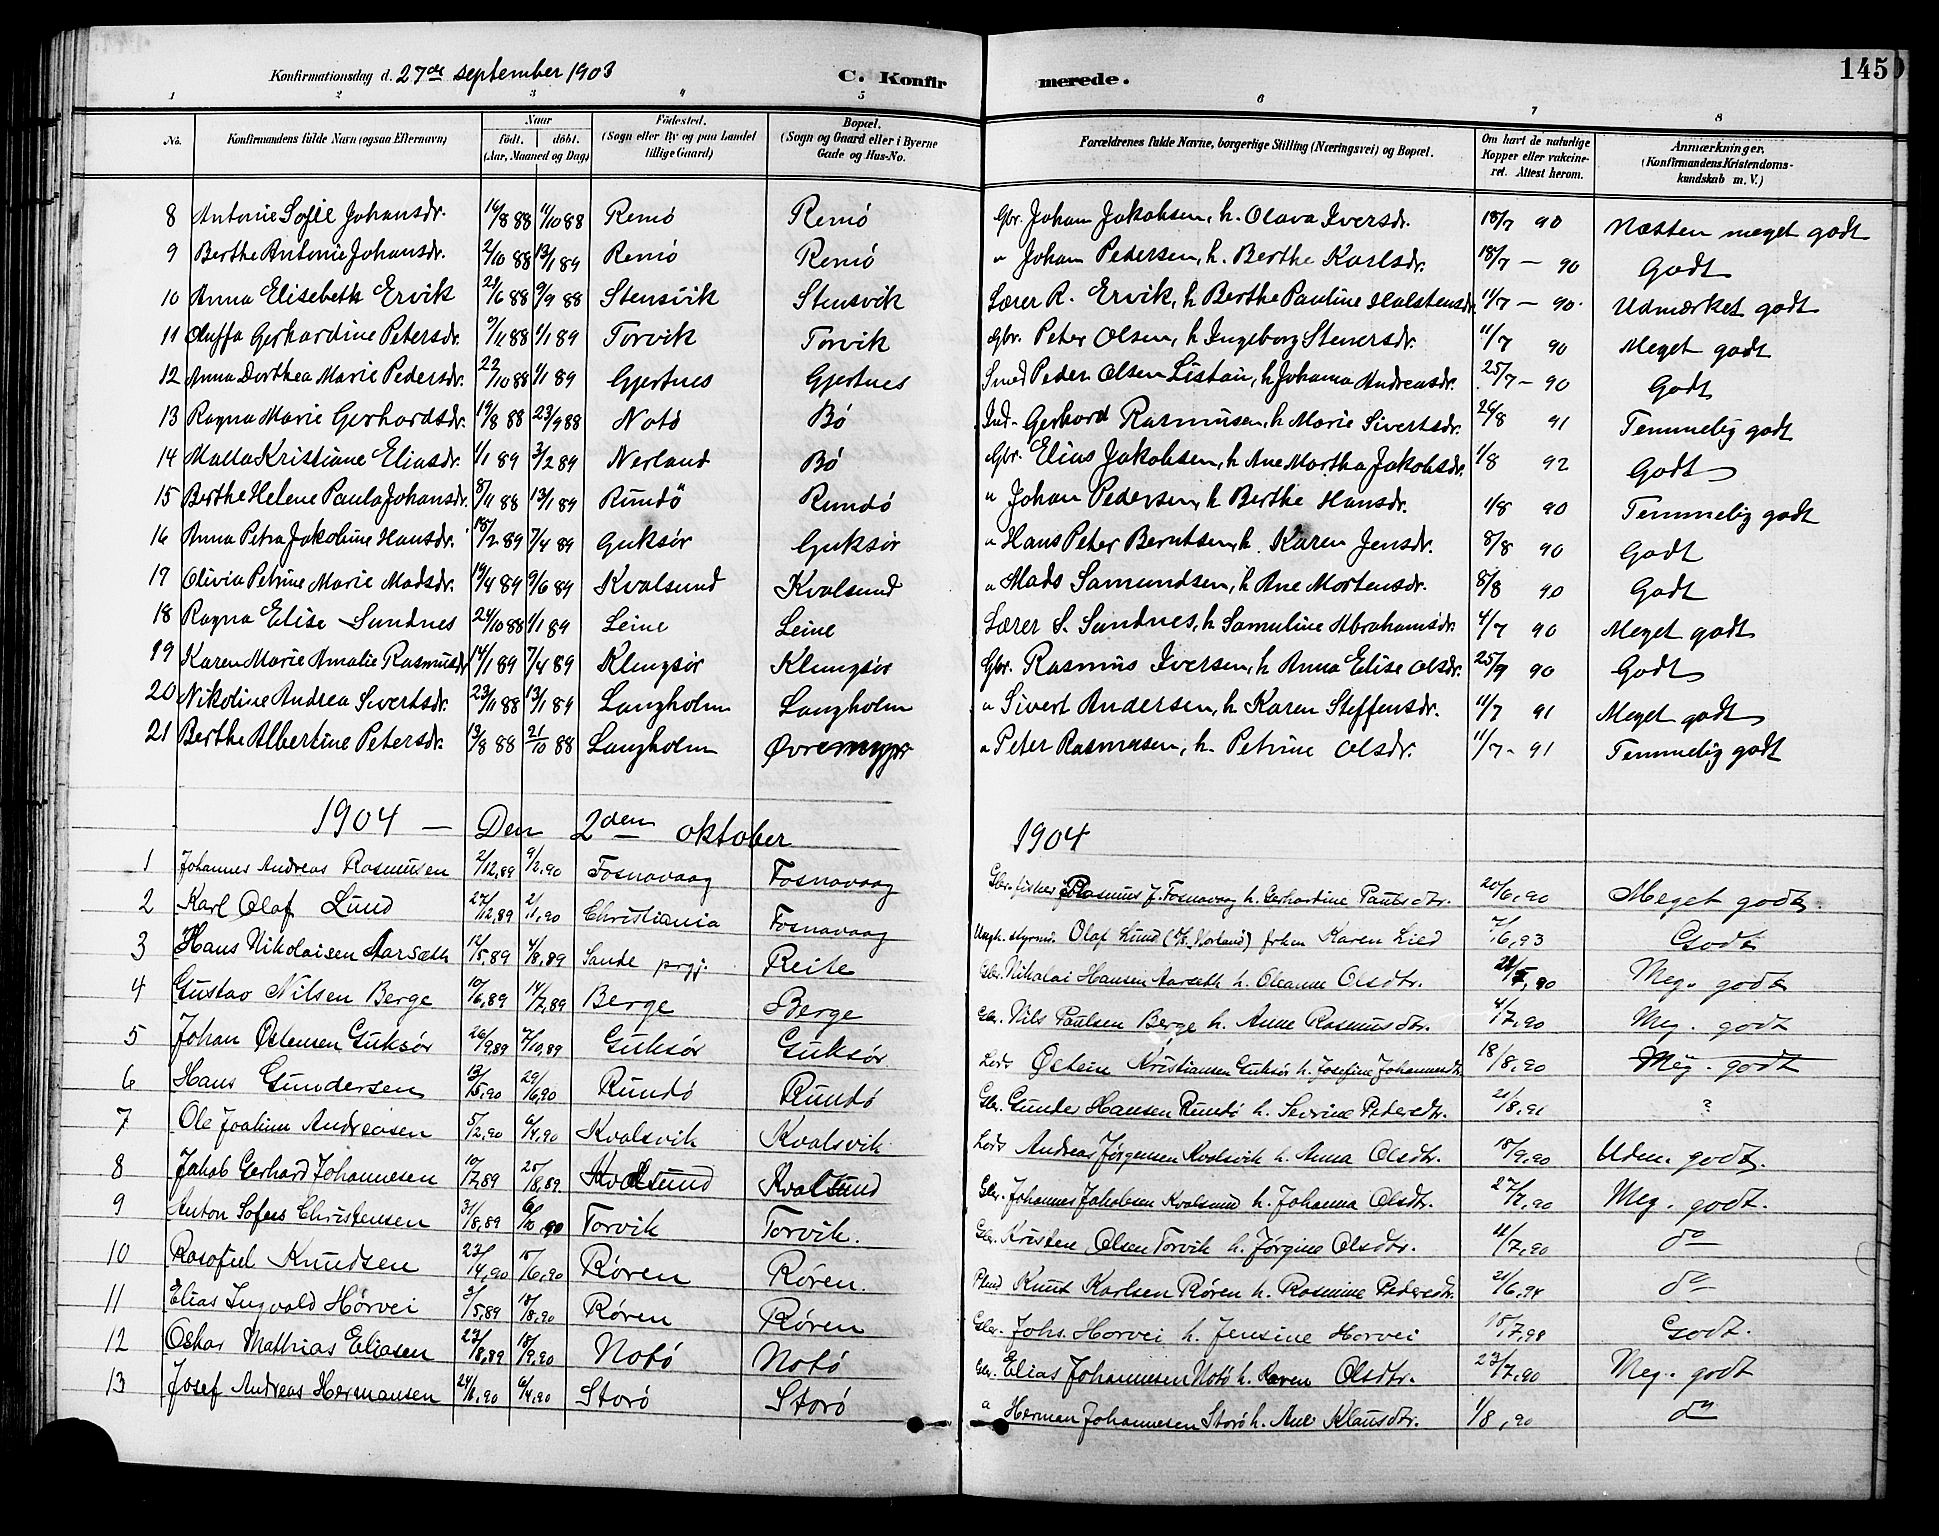 Konfirmationsdag d. 27de september 1903 C. Konfirmerede. 145
1 2 3 4 5 6 7 8
No. | Konfirmandens fulde Navn (ogsaa Efternavn) | Naar født. døbt. (Aar, Maaned og Dag) | Fødested. (Sogn eller By og paa Landet tillige Gaard) | Bopæl. (Sogn og Gaard eller i Byerne Gade og Hus-No. | Forældrenes fulde Navne, borgerlige Stilling (Næringsvei) og Bopæl. | Om havt de naturlige Kopper eller vakcineret. Attest herom. | Anmærkninger. (Konfirmandens Kristendomskundskab m. V.)
8 Antonie Sofie Johansdr. 14/8 88 11/10 88 Remö Remö Gbr. Johan Jakobsen, h. Olava Iversdr. 18/7 90 Næsten meget godt
9 Berthe Antonie Johansdr. 2/10 88 13/1 89 Remö Remö " Johan Pedersen, h. Berthe Karlsdr. 18/7 - 90 Godt
10 Anna Elisebeth Ervik 24/6 88 9/9 88 Stensvik Stensvik Lærer R. Ervik, h Berthe Pauline Halstensdr. 11/7 - 90. Udmærket godt
11 Gerhardine Petersdr. 9/11 88 1/1 89 Torvik Torvik Gbr. Peter Olsen, h Ingeborg Stenersdr. 11/7 90 Meget godt
12 Anna Dorthea Marie Pedersdr. 22/10 88 1/1 89 Gjertnes Gjertnes Smed Peder Olsen Listau, h Johana Andreasdr. 25/7 - 90 Godt
13 Ragna Marie Gerhardsdr. 19/8 88 23/9 88 Notö Bö Ind. Gerhard Rasmusen, h Marie Sivertsdr. 26/8 91 Temmelig godt
14 Malla Kristiane Eliasdr. 1/1 89 3/2 89 Nerland Bö Gbr. Elias Jakobsen, h Ane Martha Jakobsdr. 1/8 92 Godt
15 Berthe Helene Paula Johansdr. 8/11 88 13/1 89 Rundö Rundö " Johan Pedersen, h Berthe Hansdr. 1/8 90 Temmelig godt
16 Anna Petra Jakobine Hansdr. 18/2 89 7/4 89 Guksör Guksör " Hans Peter Berntsen, h. Karen Jensdr. 8/8 90 Godt
17 Olivia Petrine Marie Madsdr. 19/4 89 9/6 89 Kvalsund Kvalsund " Mads Samundsen, h Ane Mortensdr. 8/8 90 Godt
18 Ragna Elise Sandnes 24/10 88 1/1 89 Leine Leine Lærer S. Sandnes, h Samuline Abrahamsdr. 4/7 90 Meget godt
19 Karen Marie Amalie Rasmusdr 14/1 89 7/4 89 Klungsör Klungsör Gbr. Rasmus Iversen, h Anna Elise Olsdr. 25/9 90 Godt
20 Nikoline Andrea Sivertsdr. 23/11 88 13/1 89 Langholm Langholm " Sivert Andersen, h Karen Steffensdr. 11/7 91 Meget godt
21 Berthe Albertine Petersdr. 13/8 88 21/10 88 Langholm Øvremyr " Peter Rasmusen, h. Petrine Olsdr. 11/7 - 91 Temmelig godt
1904 — Den 2den oktober 1904
1 Johannes Andreas Rasmusen 2/12,89 9/2,90 Fosnavaag Fosnavaag Gbr. fisker Rasmus J. Fosnavaag h. Gerhardine Paulsdtr. 20/6,90 Meget godt
2 Karl Olaf Lund 27/12,89 2/11,90 Christiania Fosnavaag Ungk. styrm. Olaf Lund (Norland) frken Karen Lied 7/6,93 Godt
3 Hans Nikolaisen Aarsæth 12/5,89 4/8,89 Sande prgj. Reite Gbr. Nikolai Hansen Aarseth h. Oleanne Olsdtr. Meg. godt
4 Gustav Nilsen Berge 10/6,89 14/7,89 Berge Berge Gbr. Nils Paulsen Berge h. Anne Rasmusdtr. 4/7,90 Meg. godt
5 Johan Østensen Guksør 26/9,89 7/10,89 Guksør Guksør Lods Østein Kristiansen Guksør h. Josefine Johannesdtr 18/8,90 Meg. godt
6 Hans Gundersen 13/5,90 29/6,90 Rundö Rundö Gbr. Gunder Hansen Rundö h. Severine Pedersdtr. 21/8,91 ?
7 Ole Joakim Andreasen 5/2,90 6/4,90 Kvalsvik Kvalsvik Lods Andreas Jørgensen Kvalsvik h. Anna Olsdtr. 18/9,90 Udm. godt.
8 Jakob Gerhard Johannesen 10/7,89 25/8,89 Kvalsund Kvalsund Gbr. Johannes Jakobsen Kvalsund h. Johanna Olsdtr. 27/7,90 Meg. godt.
9 Anton Sofus Christensen 31/8,89 6/10,90 Torvik Torvik. Gbr. Kristen Olsen Torvik h. Jørgine Olsdtr. 11/7,90 do
10 Rasofiel Knudsen 23/4,90 15/6,90 Røren Røren. Knut Karlsen Røren h. Rasmine Pedersdtr. 21/6,94 do
11 Elias Ingvald Hørvei 3/5,89 18/8,90 Røren Røren Gbr. Johs. Horvei h. Jensine Horvei Godt.
12 Oskar Mathias Eliasen 23/8,89 18/9,90 Notö Notö Gbr. Elias Johannesen Notö h. Karen Olsdtr. 23/7,90 Meg. godt
13 Josef Andreas Hermansen 24/1,90 6/4,90 Storö Storö " Herman Johannesen Storö h. Ane Klausdtr. 1/8,90 do